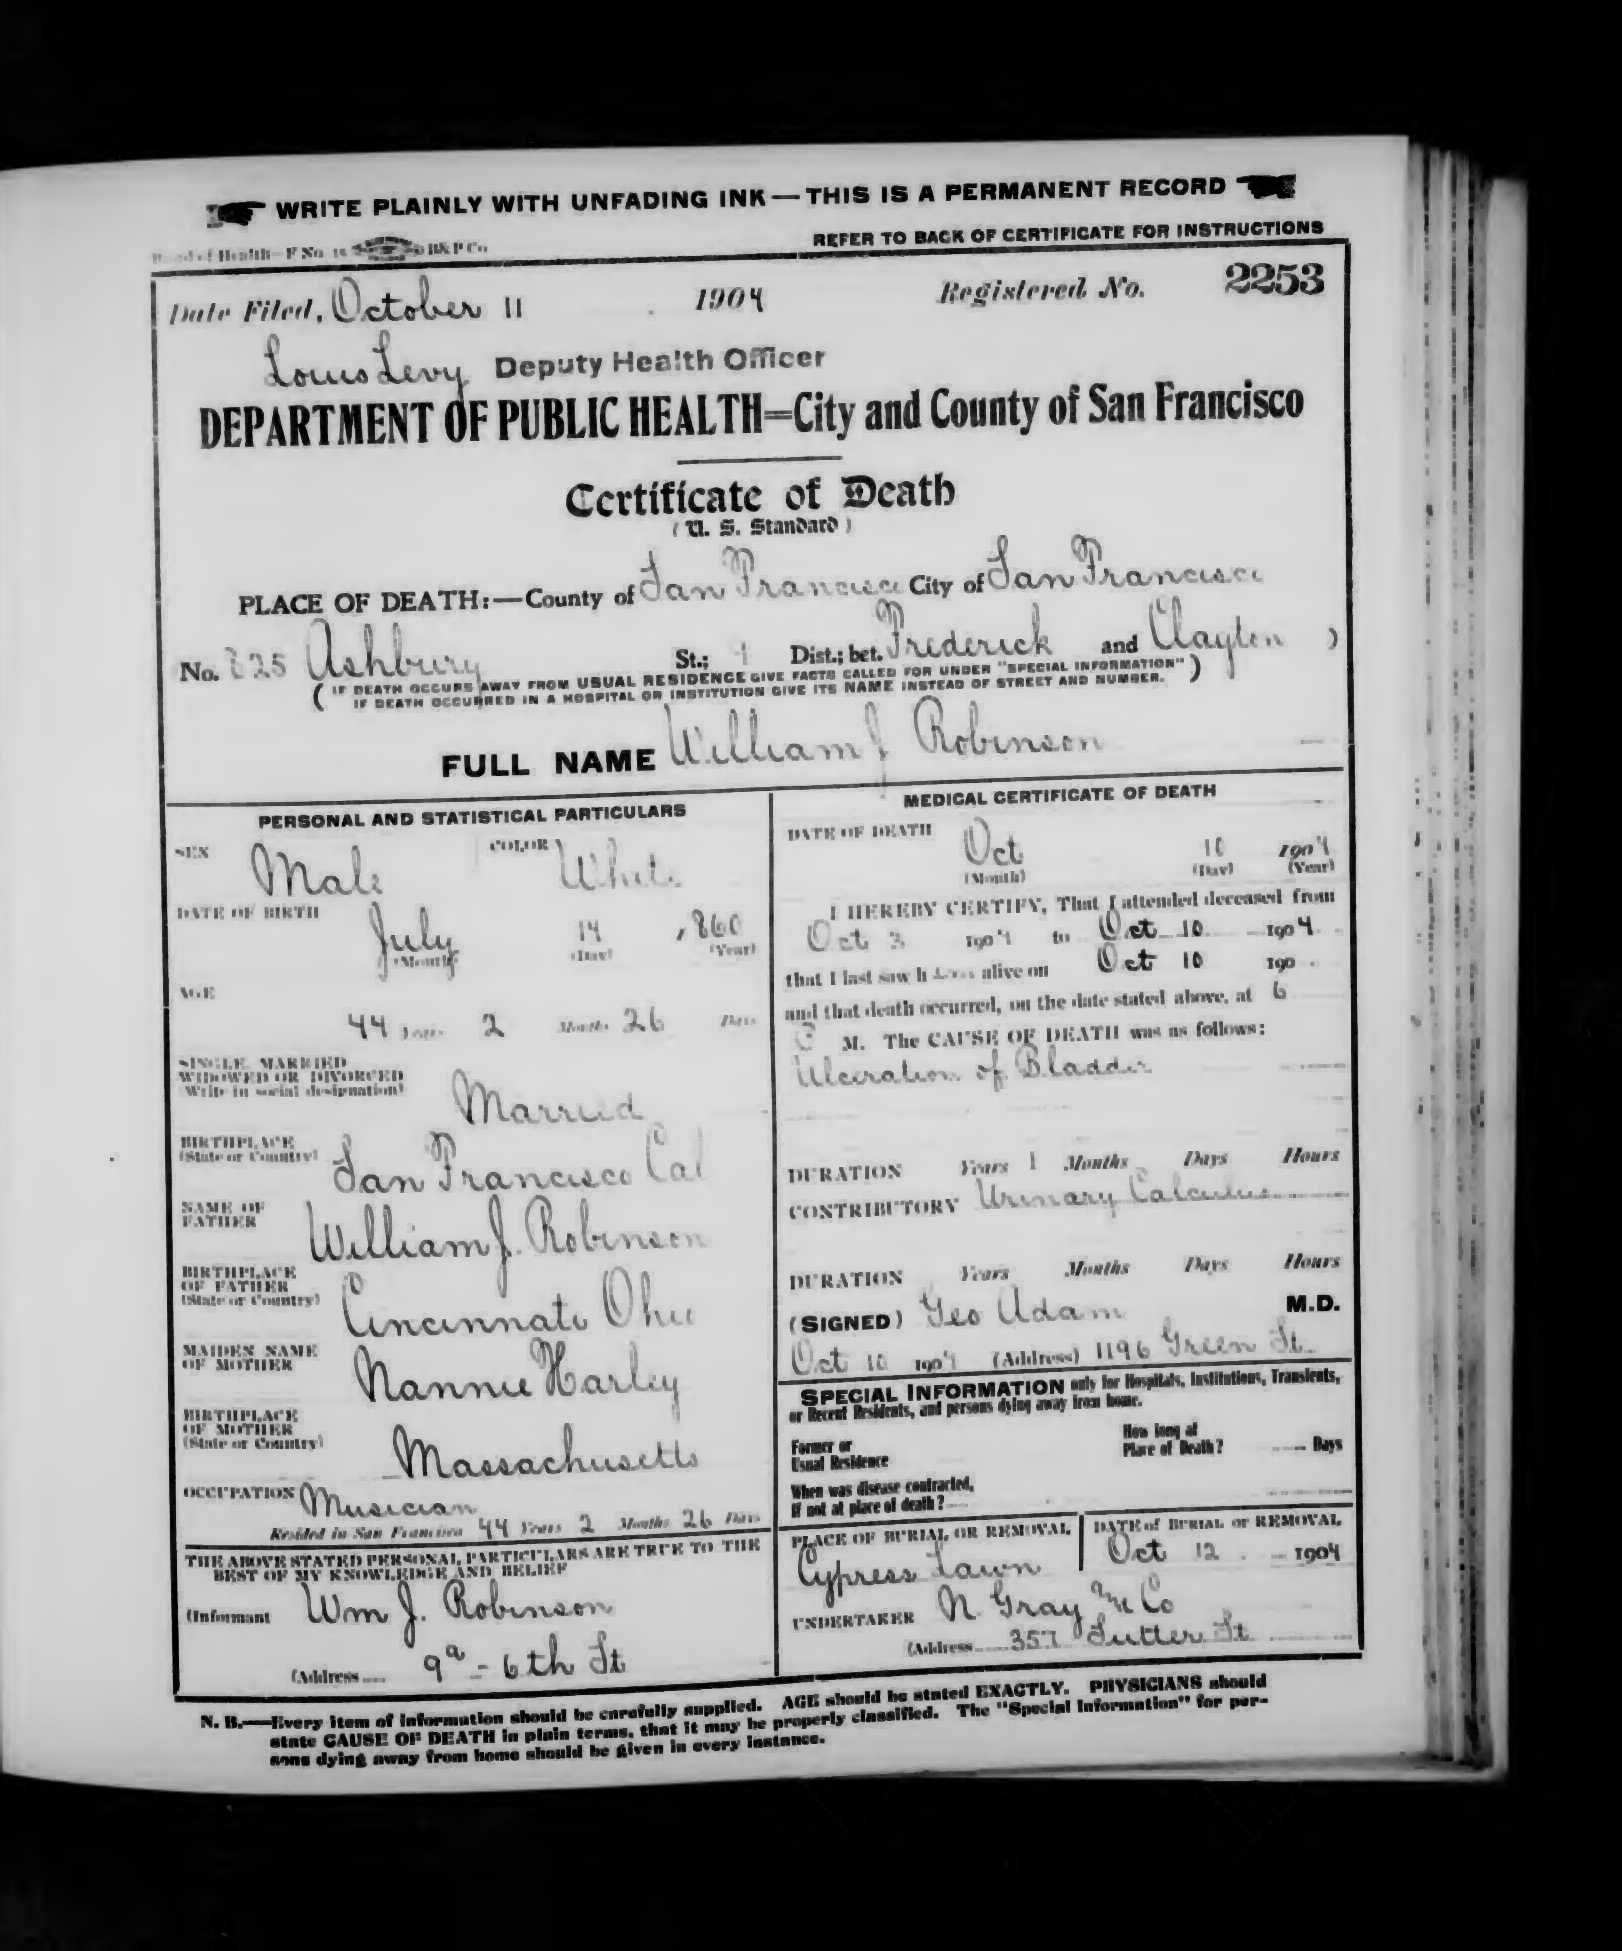 WRITE PLAINLY WITH UNFADING INK — THIS IS A PERMANENT RECORD
Board of Health—F No. B&P Co
REFER TO BACK OF CERTIFICATE FOR INSTRUCTIONS
Date Filed, October 11 1904 Registered No. 2253
Louis Levy Deputy Health Officer
DEPARTMENT OF PUBLIC HEALTH=City and County of San Francisco
Certificate of Death
( U. S. Standard )
PLACE OF DEATH:—County of San Francisco City of San Francisco
No. 825 Ashbury St.; Dist.; bet. Frederick and Clayton )
( IF DEATH OCCURS AWAY FROM USUAL RESIDENCE GIVE FACTS CALLED FOR UNDER "SPECIAL INFORMATION" )
IF DEATH OCCURRED IN A HOSPITAL OR INSTITUTION GIVE ITS NAME INSTEAD OF STREET AND NUMBER.
FULL NAME William J Robinson
PERSONAL AND STATISTICAL PARTICULARS
SEX Male COLOR White
DATE OF BIRTH July 14 1860
(Month) (Day) (Year)
AGE
44 Years 2 Months 26 Days
SINGLE, MARRIED
WIDOWED OR DIVORCED
(Write in social designation)
Married
BIRTHPLACE
(State or Country)
San Francisco Cal
NAME OF
FATHER
William J. Robinson
BIRTHPLACE
OF FATHER
(State or Country)
Cincinnati Ohio
MAIDEN NAME
OF MOTHER
Nannie Harley
BIRTHPLACE
OF MOTHER
(State or Country)
Massachusetts
OCCUPATION Musician
Resided in San Francisco 44 Years 2 Months 26 Days
THE ABOVE STATED PERSONAL PARTICULARS ARE TRUE TO THE
BEST OF MY KNOWLEDGE AND BELIEF
(Informant Wm J. Robinson
(Address 9a - 6th St
MEDICAL CERTIFICATE OF DEATH
DATE OF DEATH
Oct 10 1904
(Month) (Day) (Year)
I HEREBY CERTIFY, That I attended deceased from
Oct 3 1904 to Oct 10 1904
that I last saw h alive on Oct 10 190
and that death occurred, on the date stated above, at 6
M. The CAUSE OF DEATH was as follows:
Ulceration of Bladder
DURATION Years 1 Months Days Hours
CONTRIBUTORY Urinary Calculus
DURATION Years Months Days Hours
(SIGNED) Geo Adam M.D.
Oct 10 1904 (Address) 1196 Green St.
SPECIAL INFORMATION only for Hospitals, Institutions, Transients,
or Recent Residents, and persons dying away from home.
Former or
Usual Residence
How long at
Place of Death? Days
When was disease contracted,
if not at place of death?
PLACE OF BURIAL OR REMOVAL
Cypress Lawn
DATE of BURIAL or REMOVAL
Oct 12 1904
UNDERTAKER N. Gray & Co
(Address 357 Sutter St
N. B.—Every item of information should be carefully supplied. AGE should be stated EXACTLY. PHYSICIANS should
state CAUSE OF DEATH in plain terms, that it may be properly classified. The "Special Information" for per-
sons dying away from home should be given in every instance.